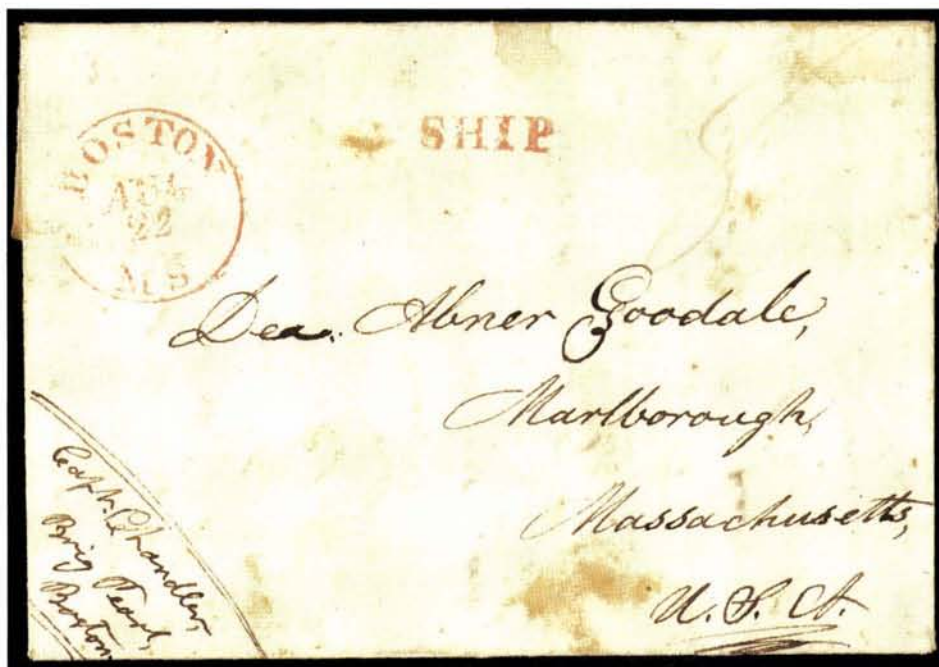 SHIP
BOSTON
AUG
22
MS
Dea. Abner Goodale,
Marlborough,
Massachusetts,
U. S. A.
Capt. Chandler,
Brig Pearl,
Boston.